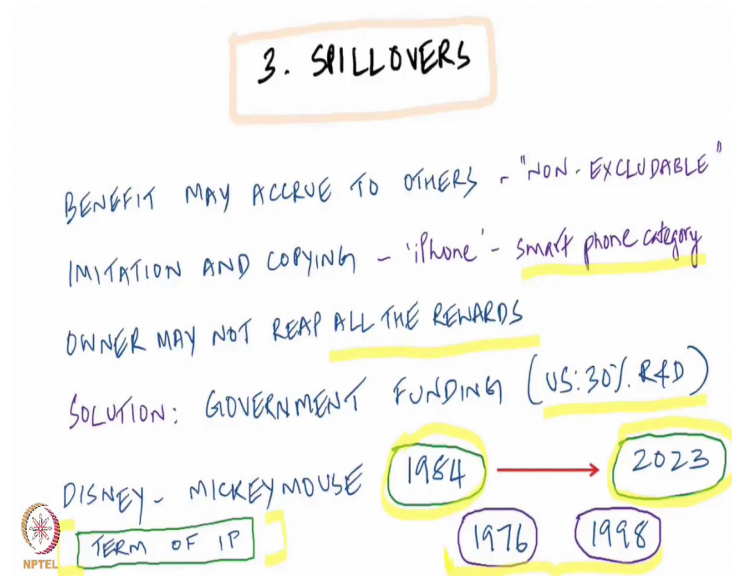 3. SPILLOVERS
BENEFIT MAY ACCRUE TO OTHERS - "NON-EXCLUDABLE"
IMITATION AND COPYING - 'iPhone' - smart phone category
OWNER MAY NOT REAP ALL THE REWARDS
SOLUTION: GOVERNMENT FUNDING (US: 30% R&D)
DISNEY - MICKEY MOUSE 1984 → 2023
TERM OF IP 1976 1998
NPTEL